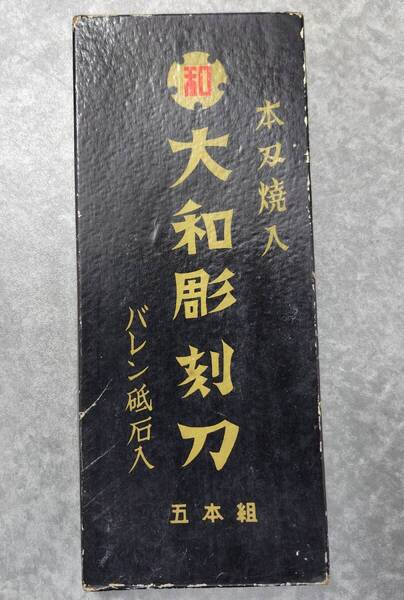 和
本刃焼入
大和彫刻刀
バレン砥石入
五本組